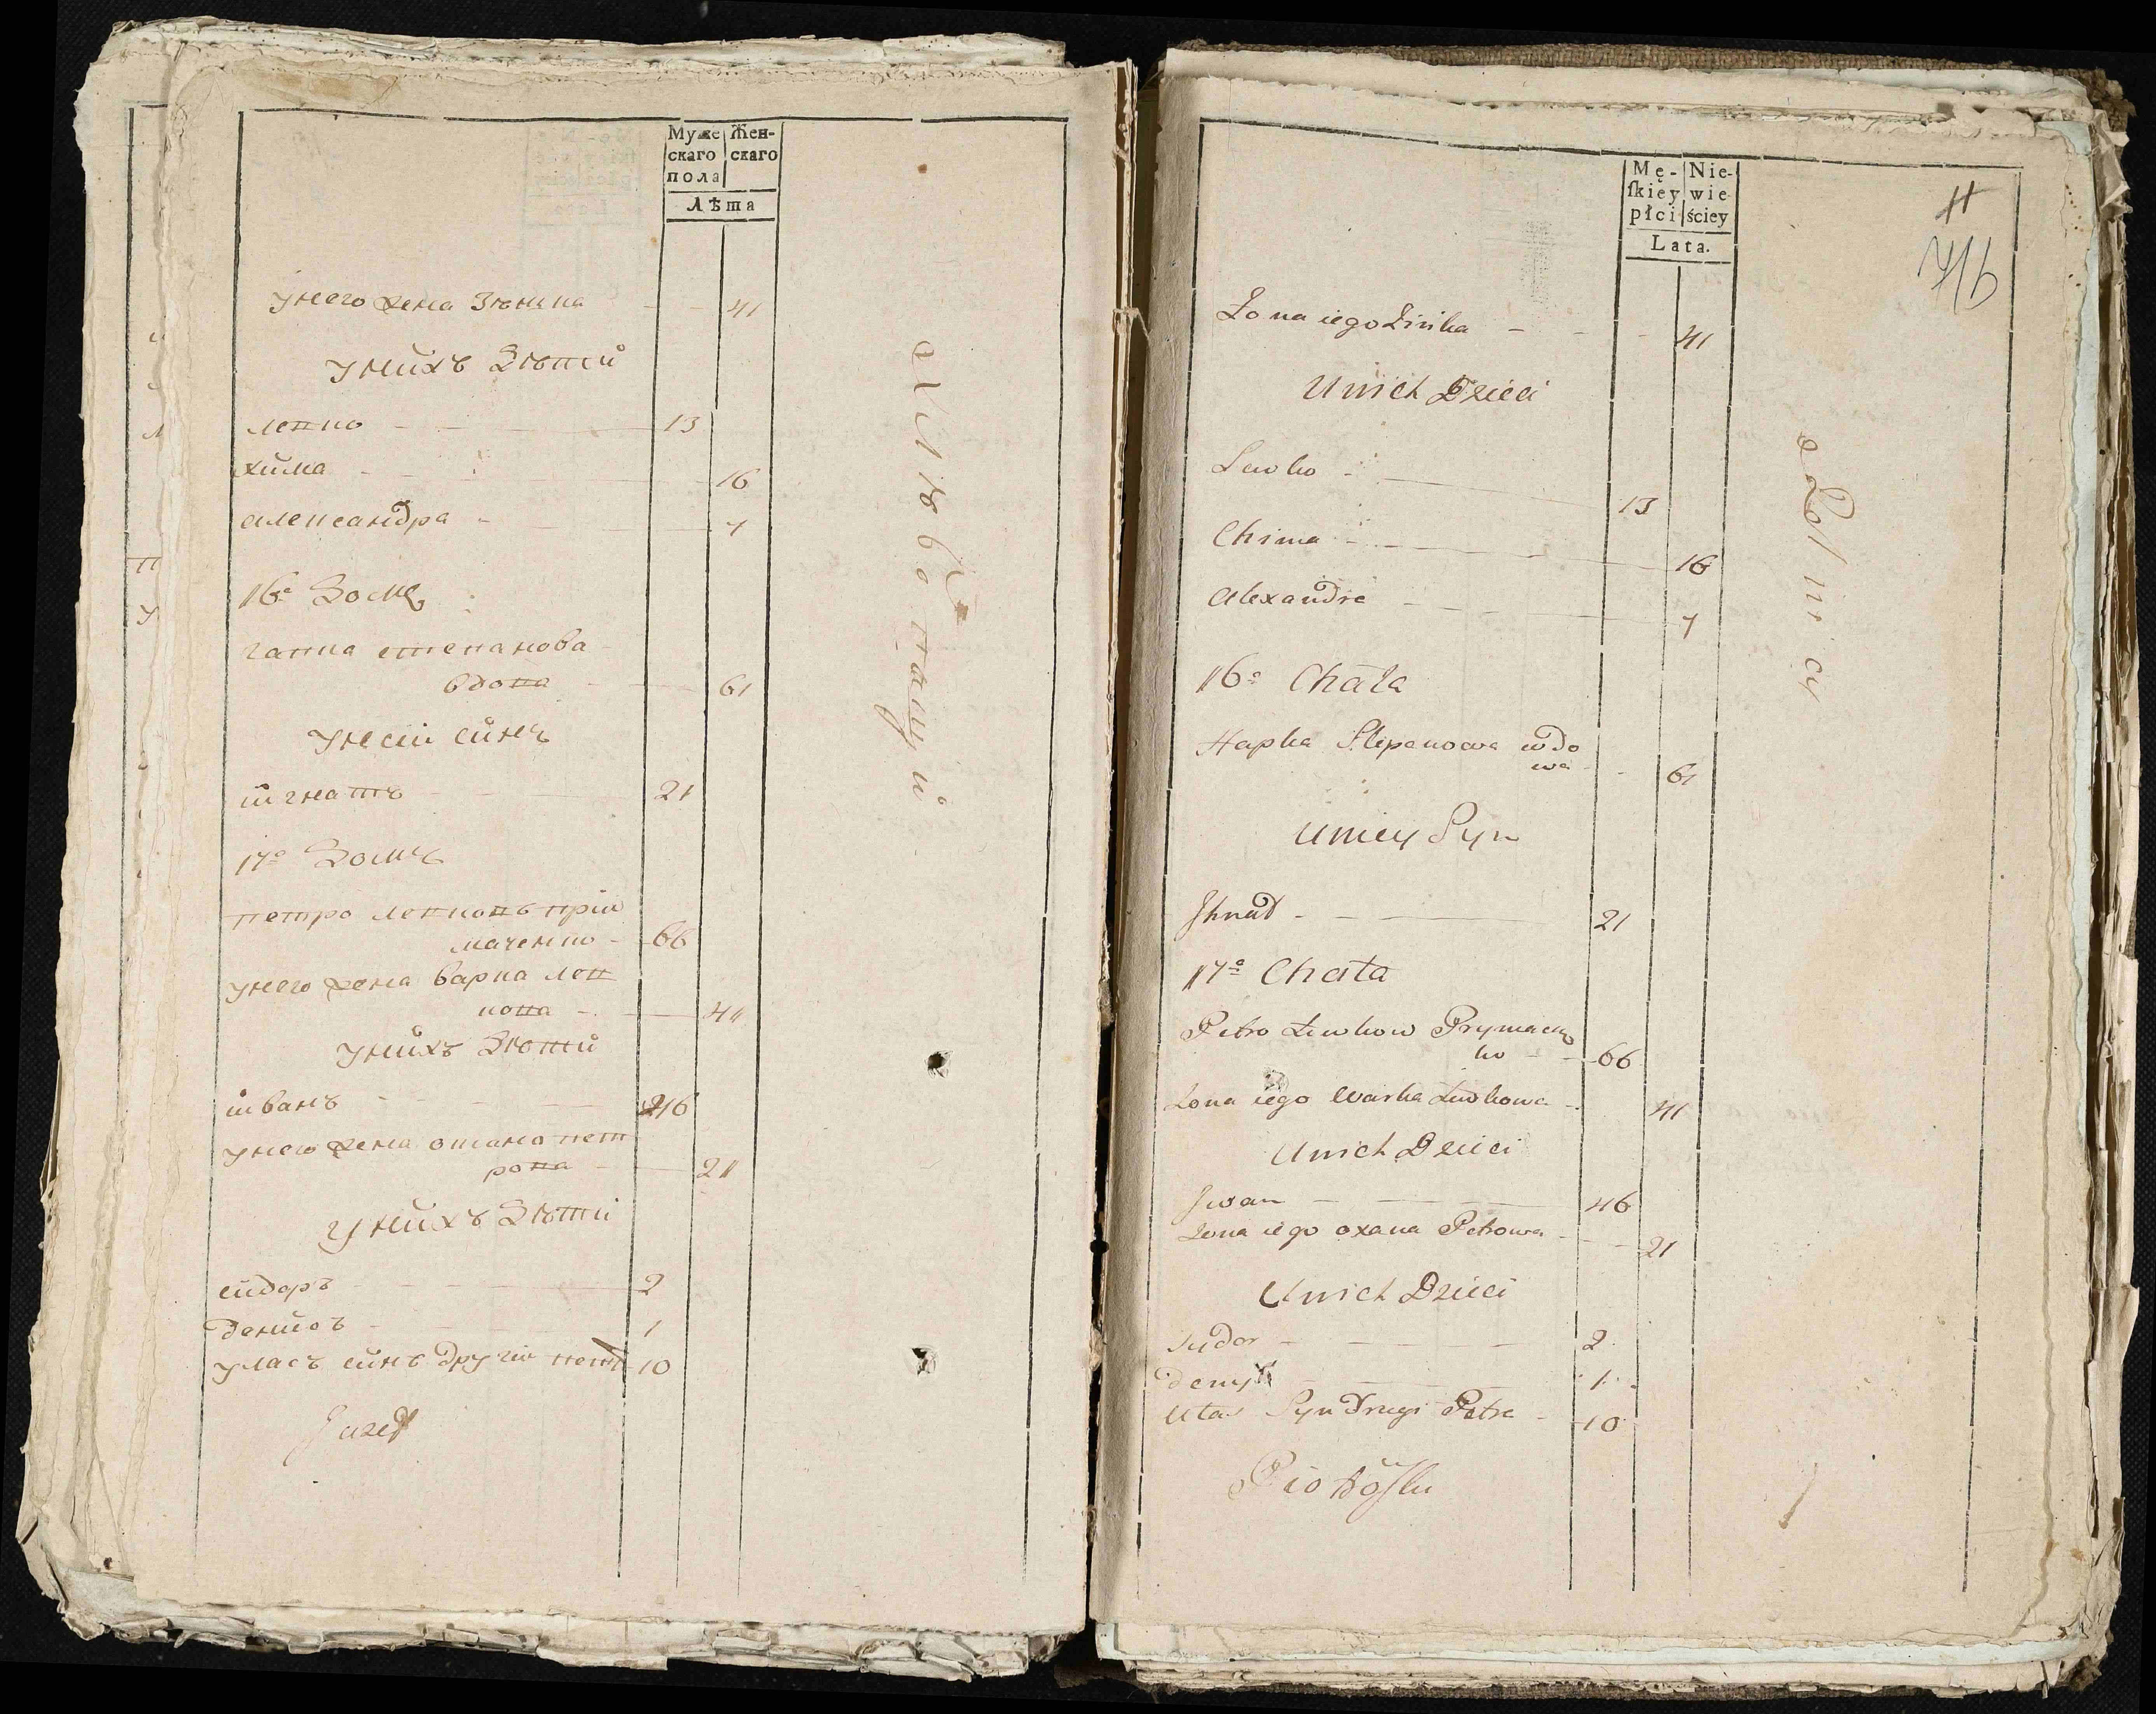 Муже Жен-
скаго скаго
пола
Лѣта
унего жена Зѣнька 41
унйхъ Дѣтей
левко 13
хима 16
александра 7
16е Домъ
гапка степанова
вдова 61
унеей сынъ
игнатъ 21
17е Домъ
петро левковъ прий
маченко 66
унего жена варка лев
кова 41
унйхъ Дѣтей
иванъ 46
унего жена оксана пет
рова 21
унйхъ Дѣтей
сидоръ 2
денисъ 1
уласъ синъ другій петр 10
Jozef
хлѣбопашцы
Mę- Nie-
ſkiey wie
płci ściey
Lata.
Zona iego Zinka 41
Unich Dzieci
Lewko 13
Chima 16
Alexandra 7
16a Chata
Hapka Stepanowa wdo
wa 61
Uniey Syn
Ihnat 21
17a Chata
Petro Lewkow Prymaczen
ko 66
Zona iego Warka Lewkowa 41
Unich Dzieci
Iwan 46
Zona iego oxana Petrowa 21
Unich Dzieci
Sidor 2
Denys 1
Ulas Syn Drugi Petra 10
Rolnicy
11